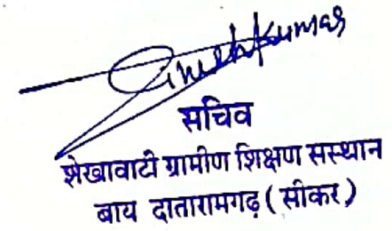 Dineshkumar
सचिव
शेखावाटी ग्रामीण शिक्षण सस्थान
बाय दातारामगढ़ ( सीकर )